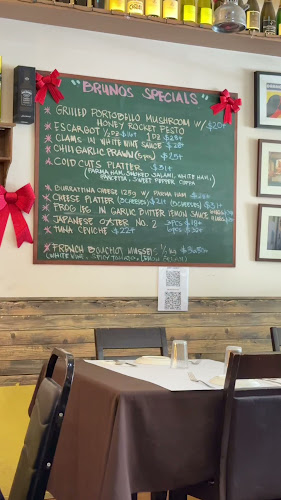 "BRUNOS SPECIALS"
* GRILLED PORTOBELLO MUSHROOM W/ $20+
HONEY ROCKET PESTO
* ESCARGOT 1/2DZ-$16+ 1DZ $28+
* CLAMS IN WHITE WINE SAUCE $28+
* CHILI GARLIC PRAWN (6pcs) $25+
* COLD CUTS PLATTER $31+
(PARMA HAM, SMOKED SALAMI, WHITE HAM,
PANCETTA, SWEET PEPPER, COPPA
* BURRATTINA CHEESE 125g W/ PARMA HAM $28+
* CHEESE PLATTER (3CHEESES) $21+ (5CHEESES) $31+
* FROG LEG IN GARLIC BUTTER LEMON SAUCE
* JAPANESE OYSTER NO. 2
* TUNA CEVICHE $22+
* FRENCH BOUCHOT MUSSELS 1/2 kg
(WHITE WINE, SPICY TOMATO,